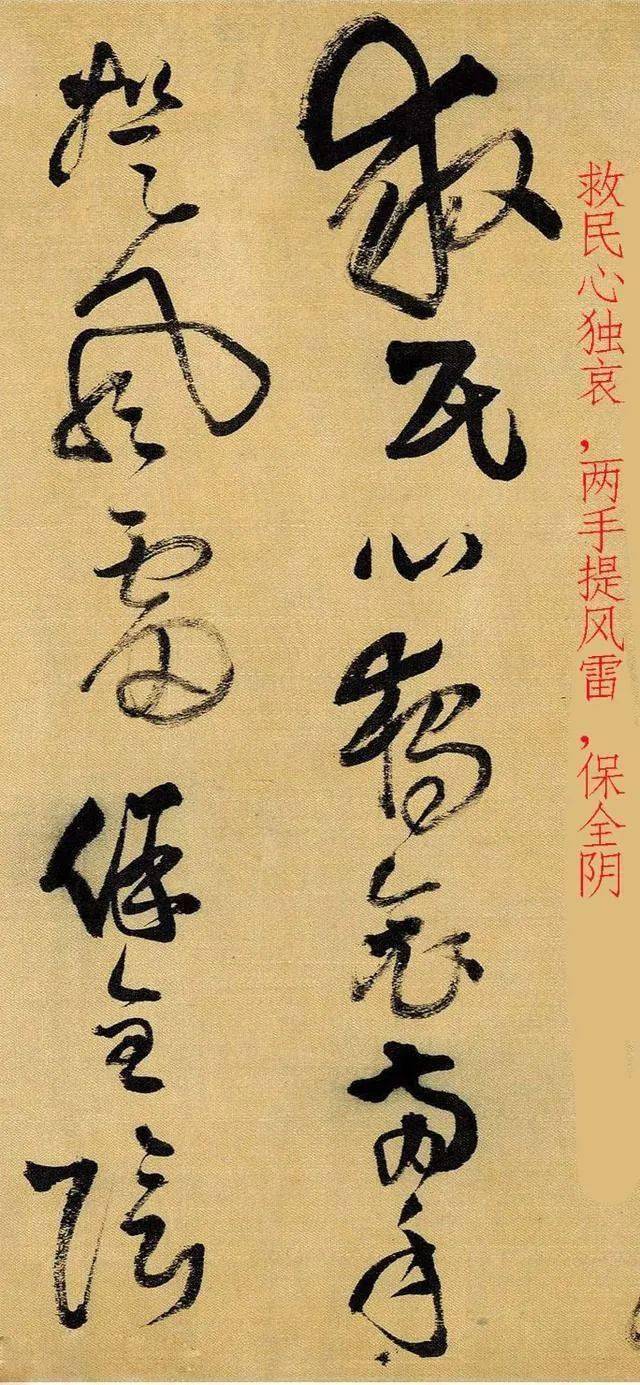 救民心独哀,两手提风雷,保全阴
救民心獨哀兩手
提風雷保全陰